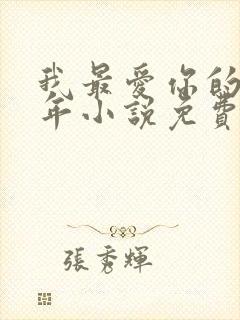 我最愛你的
年小說免費
張秀輝